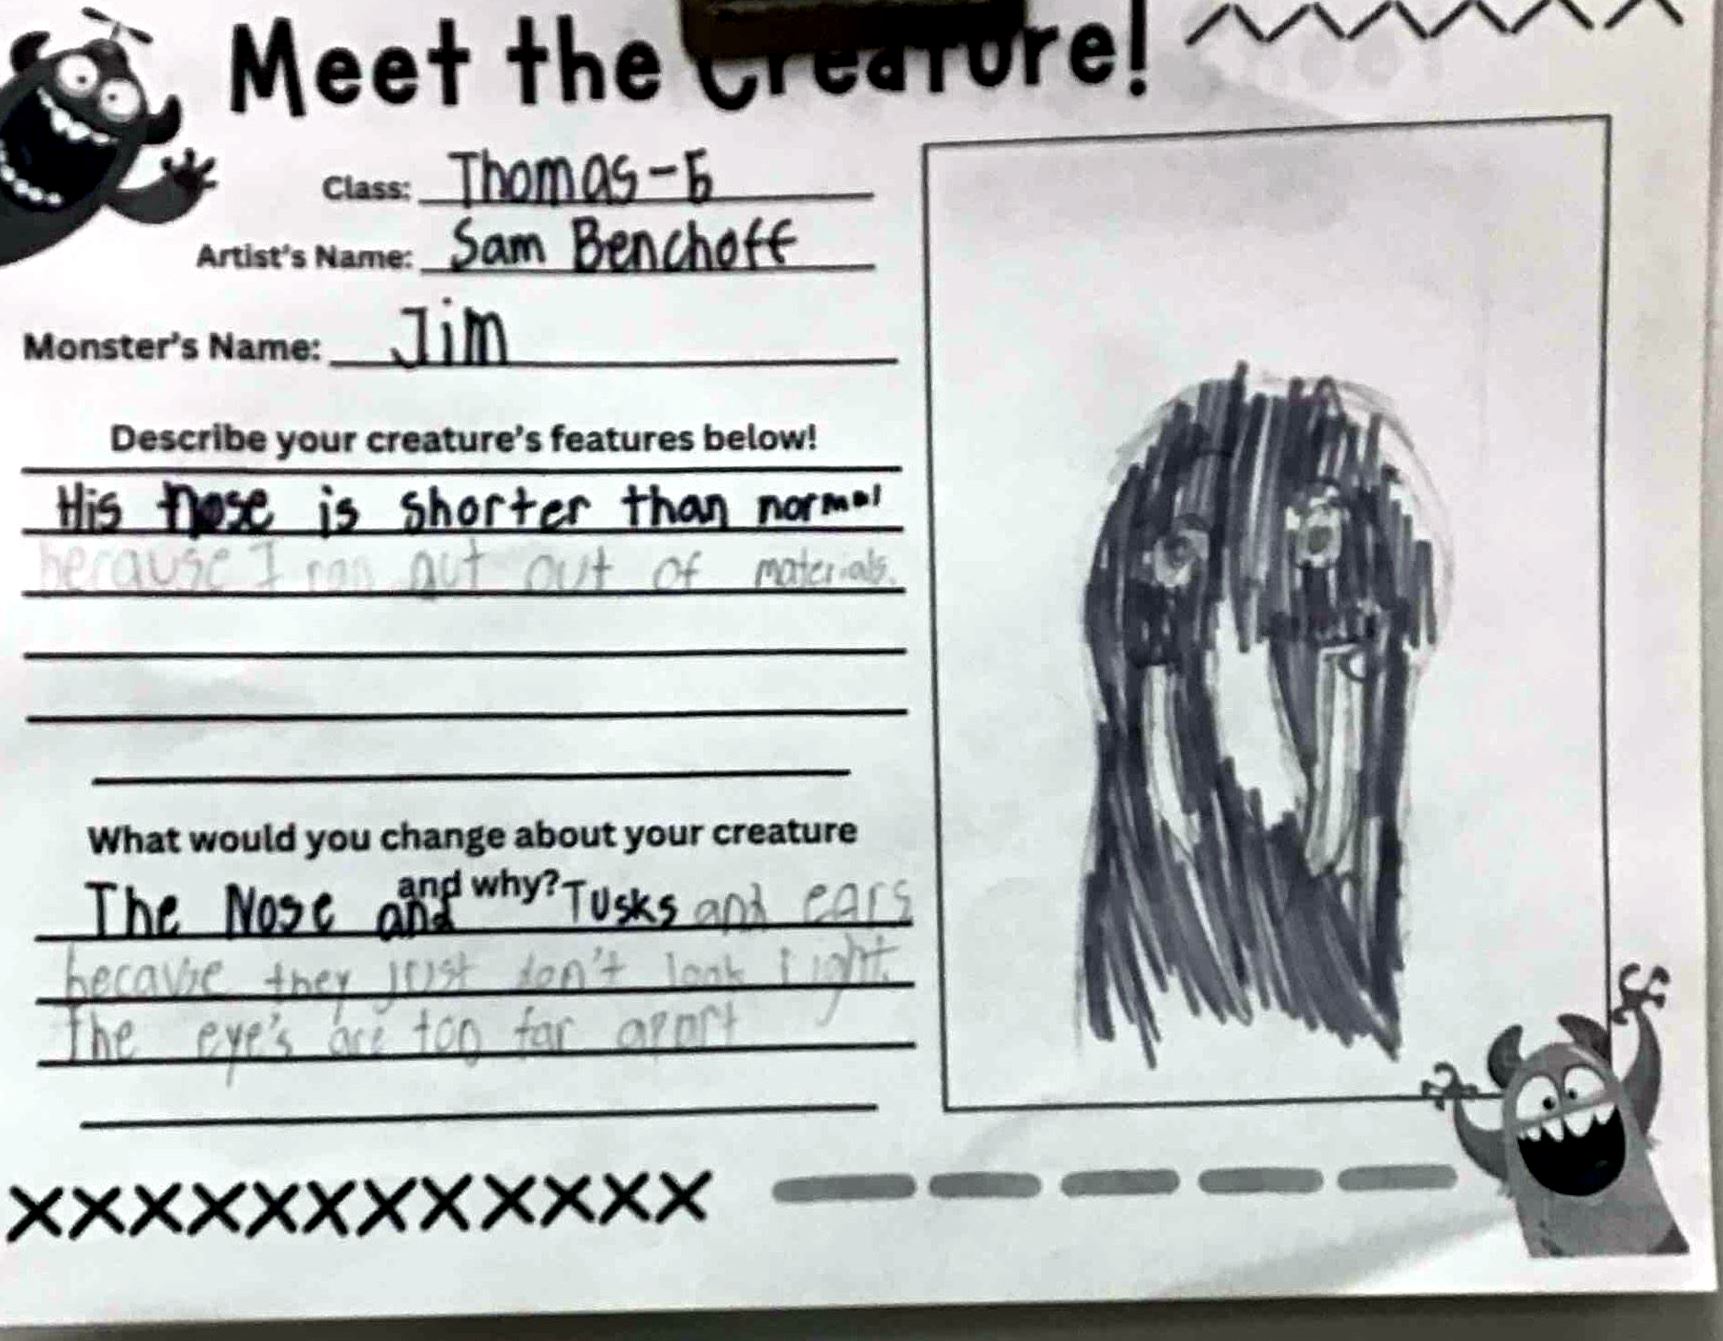 Meet the Creature!
Class: Thomas-5
Artist's Name: Sam Benchoff
Monster's Name: Jim
Describe your creature's features below!
His nose is shorter than normal
because I ran out out of materials.
What would you change about your creature
and why?
The Nose and Tusks and ears
because they just don't look right.
The eye's are too far apart
XXXXXXXXXXXX